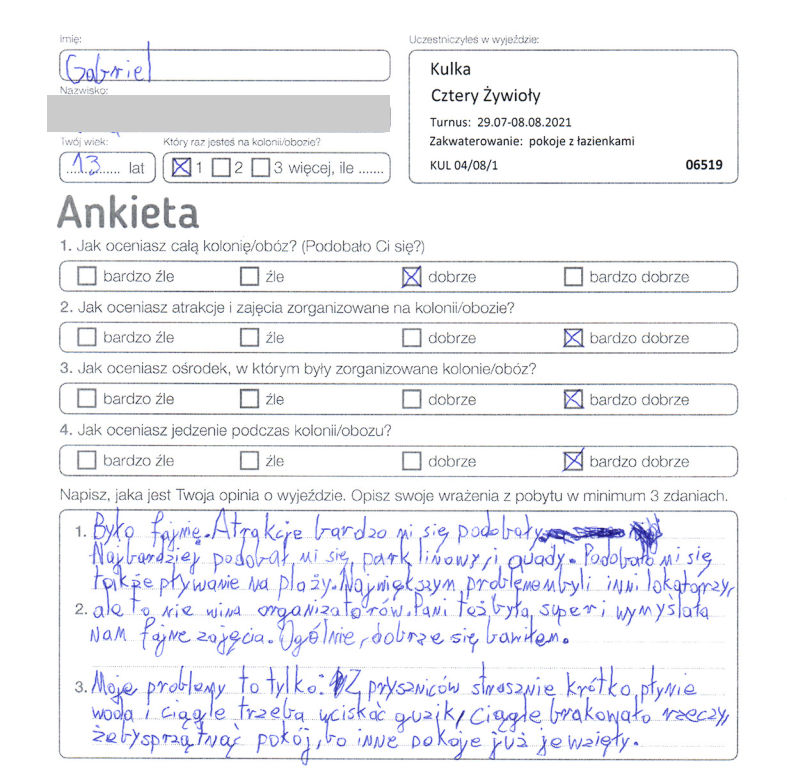 Imię:
Gabriel
Nazwisko:
Twój wiek:
13 lat
Który raz jesteś na kolonii/obozie?
1 2 3 więcej, ile .......
Uczestniczyłeś w wyjeździe:
Kulka
Cztery Żywioły
Turnus: 29.07-08.08.2021
Zakwaterowanie: pokoje z łazienkami
KUL 04/08/1 06519
Ankieta
1. Jak oceniasz całą kolonię/obóz? (Podobało Ci się?)
bardzo źle źle dobrze bardzo dobrze
2. Jak oceniasz atrakcje i zajęcia zorganizowane na kolonii/obozie?
bardzo źle źle dobrze bardzo dobrze
3. Jak oceniasz ośrodek, w którym były zorganizowane kolonie/obóz?
bardzo źle źle dobrze bardzo dobrze
4. Jak oceniasz jedzenie podczas kolonii/obozu?
bardzo źle źle dobrze bardzo dobrze
Napisz, jaka jest Twoja opinia o wyjeździe. Opisz swoje wrażenia z pobytu w minimum 3 zdaniach.
1. Było fajnie. Atrakcje bardzo mi się podobały
Najbardziej podobał mi się park linowy, i quady. Podobało mi się
także pływanie na plaży. Największym problemem byli inni lokatorzy,
2. ale to nie wina organizatorów. Pani też była super i wymyślała
nam fajne zajęcia. Ogólnie, dobrze się bawiłem.
3. Moje problemy to tylko: Z pryszniców strasznie krótko płynie
woda i ciągle trzeba uciskać guzik, Ciągle brakowało rzeczy,
żeby sprzątnąć pokój, bo inne pokoje już je wzięły.